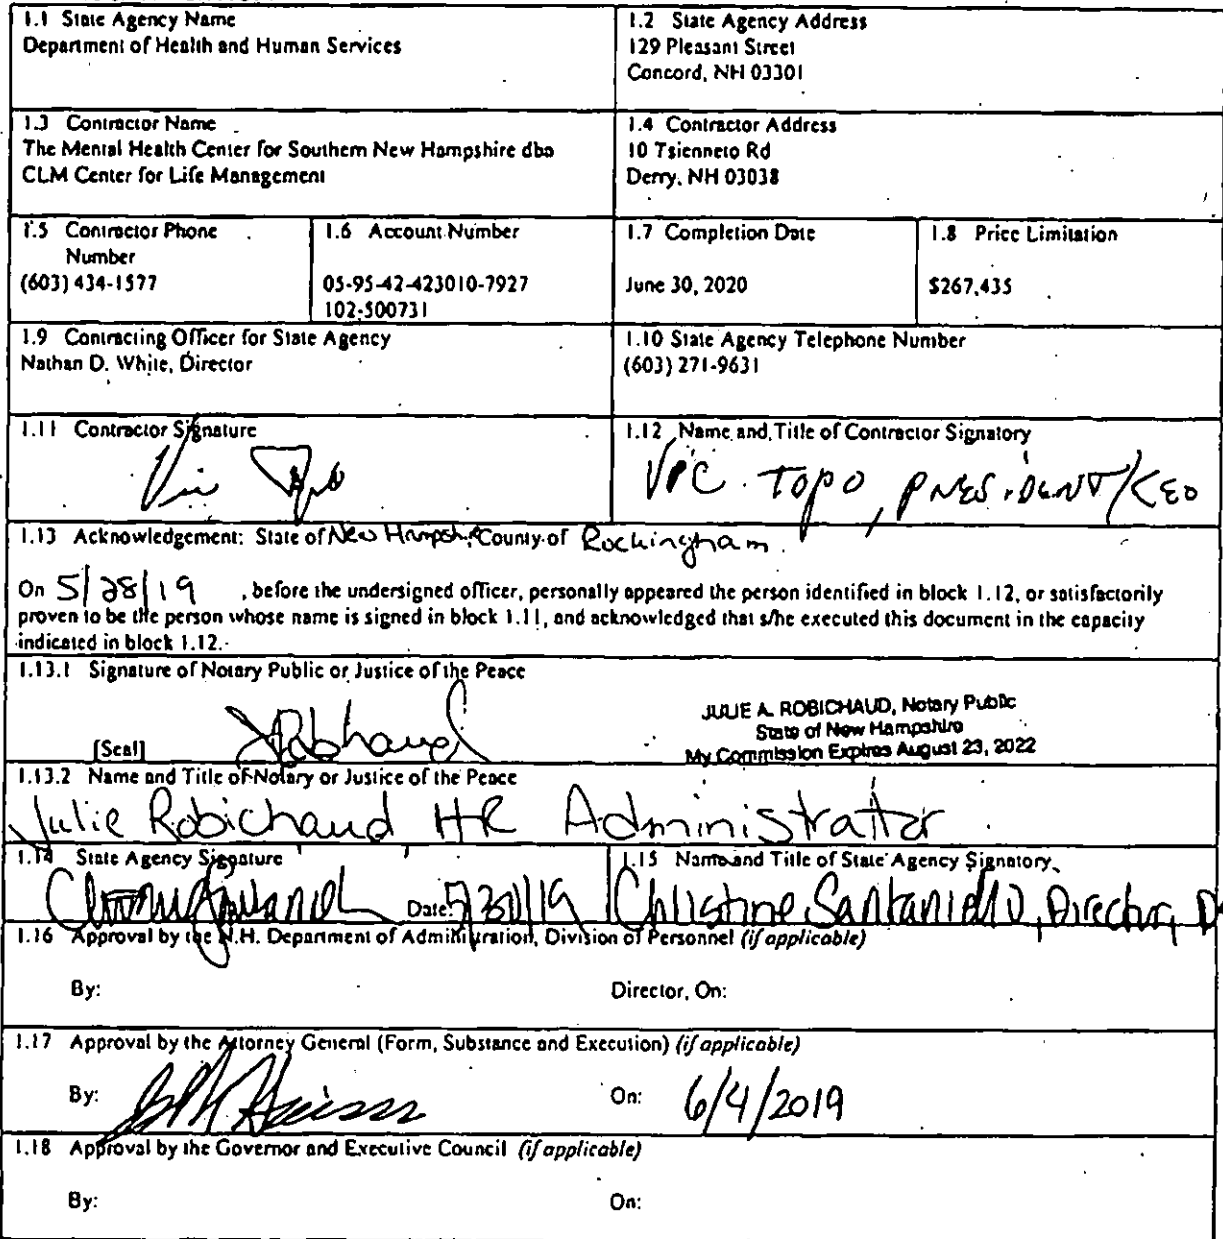 1.1 State Agency Name
Department of Health and Human Services
1.2 State Agency Address
129 Pleasant Street
Concord, NH 03301
1.3 Contractor Name
The Mental Health Center for Southern New Hampshire dba
CLM Center for Life Management
1.4 Contractor Address
10 Tsienneto Rd
Derry, NH 03038
1.5 Contractor Phone
Number
(603) 434-1577
1.6 Account Number
05-95-42-423010-7927
102-500731
1.7 Completion Date
June 30, 2020
1.8 Price Limitation
$267,435
1.9 Contracting Officer for State Agency
Nathan D. White, Director
1.10 State Agency Telephone Number
(603) 271-9631
1.11 Contractor Signature
Vic Topo
1.12 Name and Title of Contractor Signatory
Vic Topo, President/CEO
1.13 Acknowledgement: State of New Hampshire County of Rockingham
On 5/28/19, before the undersigned officer, personally appeared the person identified in block 1.12, or satisfactorily
proven to be the person whose name is signed in block 1.11, and acknowledged that s/he executed this document in the capacity
indicated in block 1.12.
1.13.1 Signature of Notary Public or Justice of the Peace
[Seal]
JRobichaud
JULIE A. ROBICHAUD, Notary Public
State of New Hampshire
My Commission Expires August 23, 2022
1.13.2 Name and Title of Notary or Justice of the Peace
Julie Robichaud HR Administrator
1.14 State Agency Signature
Date: 5/30/19
1.15 Name and Title of State Agency Signatory
Christine Santaniello, Director, D
1.16 Approval by the N.H. Department of Administration, Division of Personnel (if applicable)
By:
Director, On:
1.17 Approval by the Attorney General (Form, Substance and Execution) (if applicable)
By:
On: 6/4/2019
1.18 Approval by the Governor and Executive Council (if applicable)
By:
On: